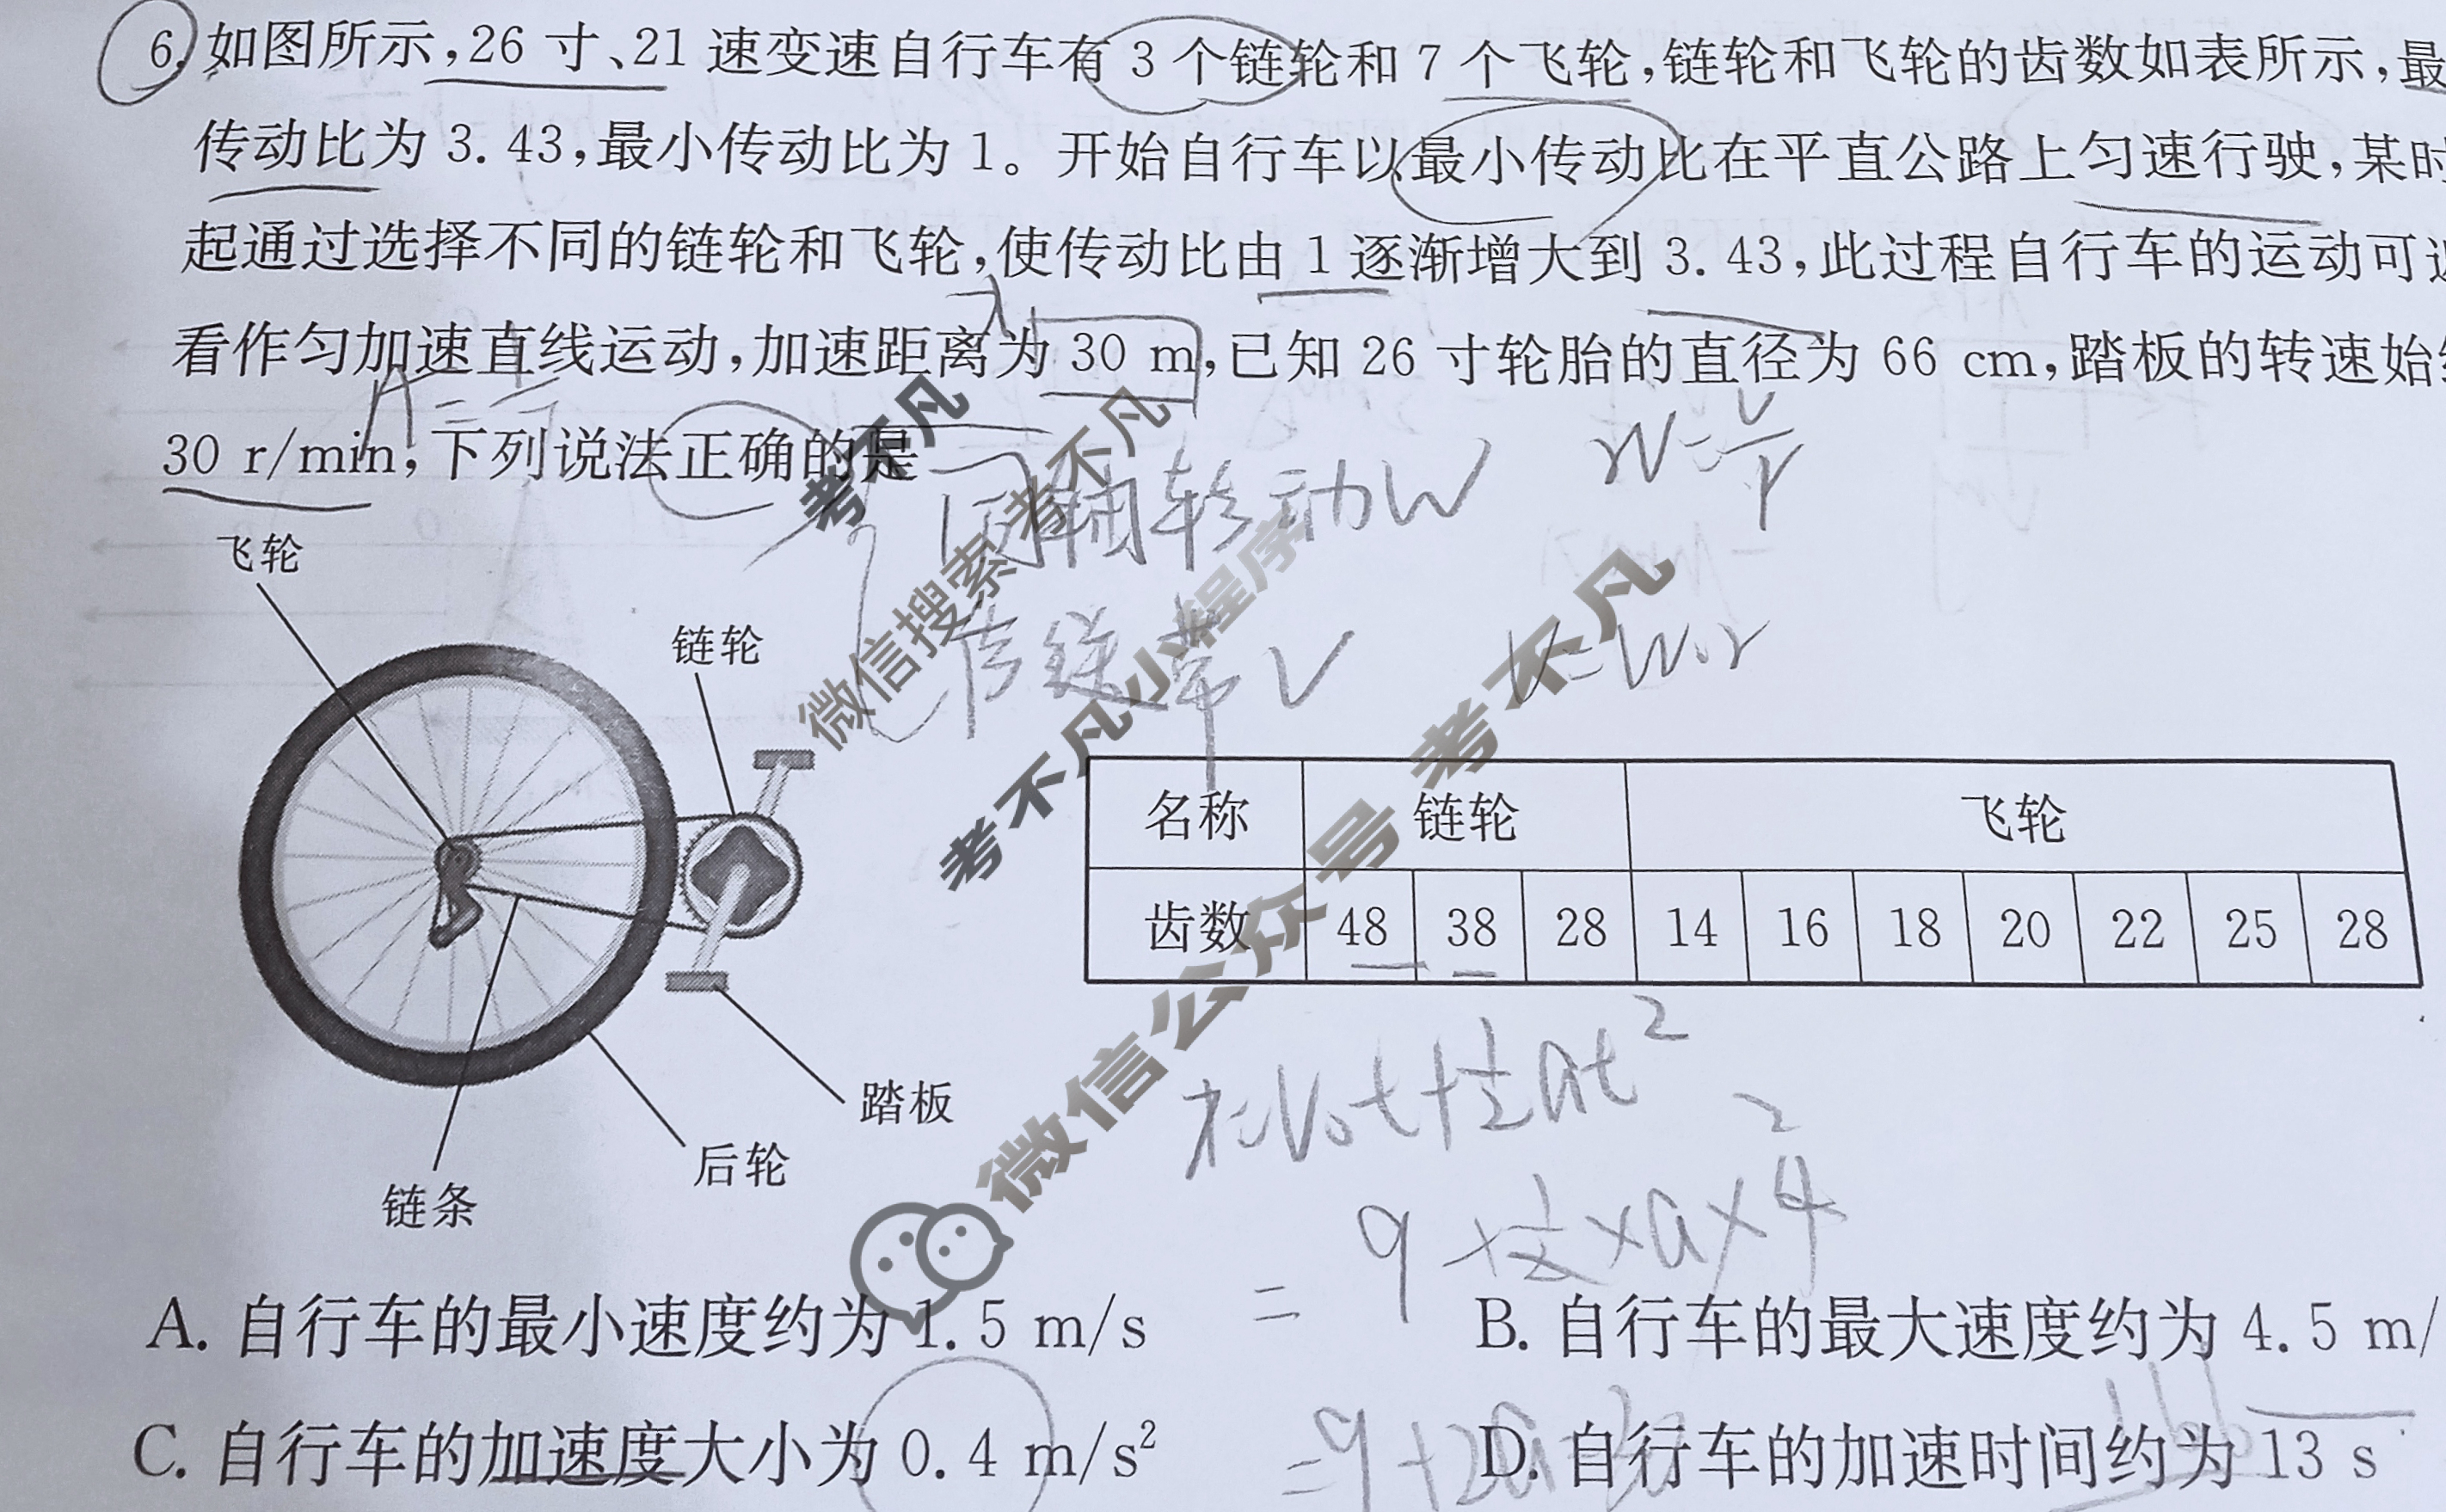 6. 如图所示,26 寸、21 速变速自行车有 3 个链轮和 7 个飞轮,链轮和飞轮的齿数如表所示,最
传动比为 3. 43,最小传动比为 1。开始自行车以最小传动比在平直公路上匀速行驶,某时
起通过选择不同的链轮和飞轮,使传动比由 1 逐渐增大到 3. 43,此过程自行车的运动可
看作匀加速直线运动,加速距离为 30 m,已知 26 寸轮胎的直径为 66 cm,踏板的转速始
30 r/min,下列说法正确的是
同轴转动W
W=V/r
传送带V
V=W·r
飞轮
链轮
踏板
后轮
链条
名称 链轮 飞轮
齿数 48 38 28 14 16 18 20 22 25 28
x=V₀t+½at²
=9×½×a×4²
A. 自行车的最小速度约为 1. 5 m/s
B. 自行车的最大速度约为 4. 5 m/
C. 自行车的加速度大小为 0. 4 m/s²
D. 自行车的加速时间约为 13 s
考不凡
考不凡
微信搜索
考不凡小程序
微信公众号 考不凡